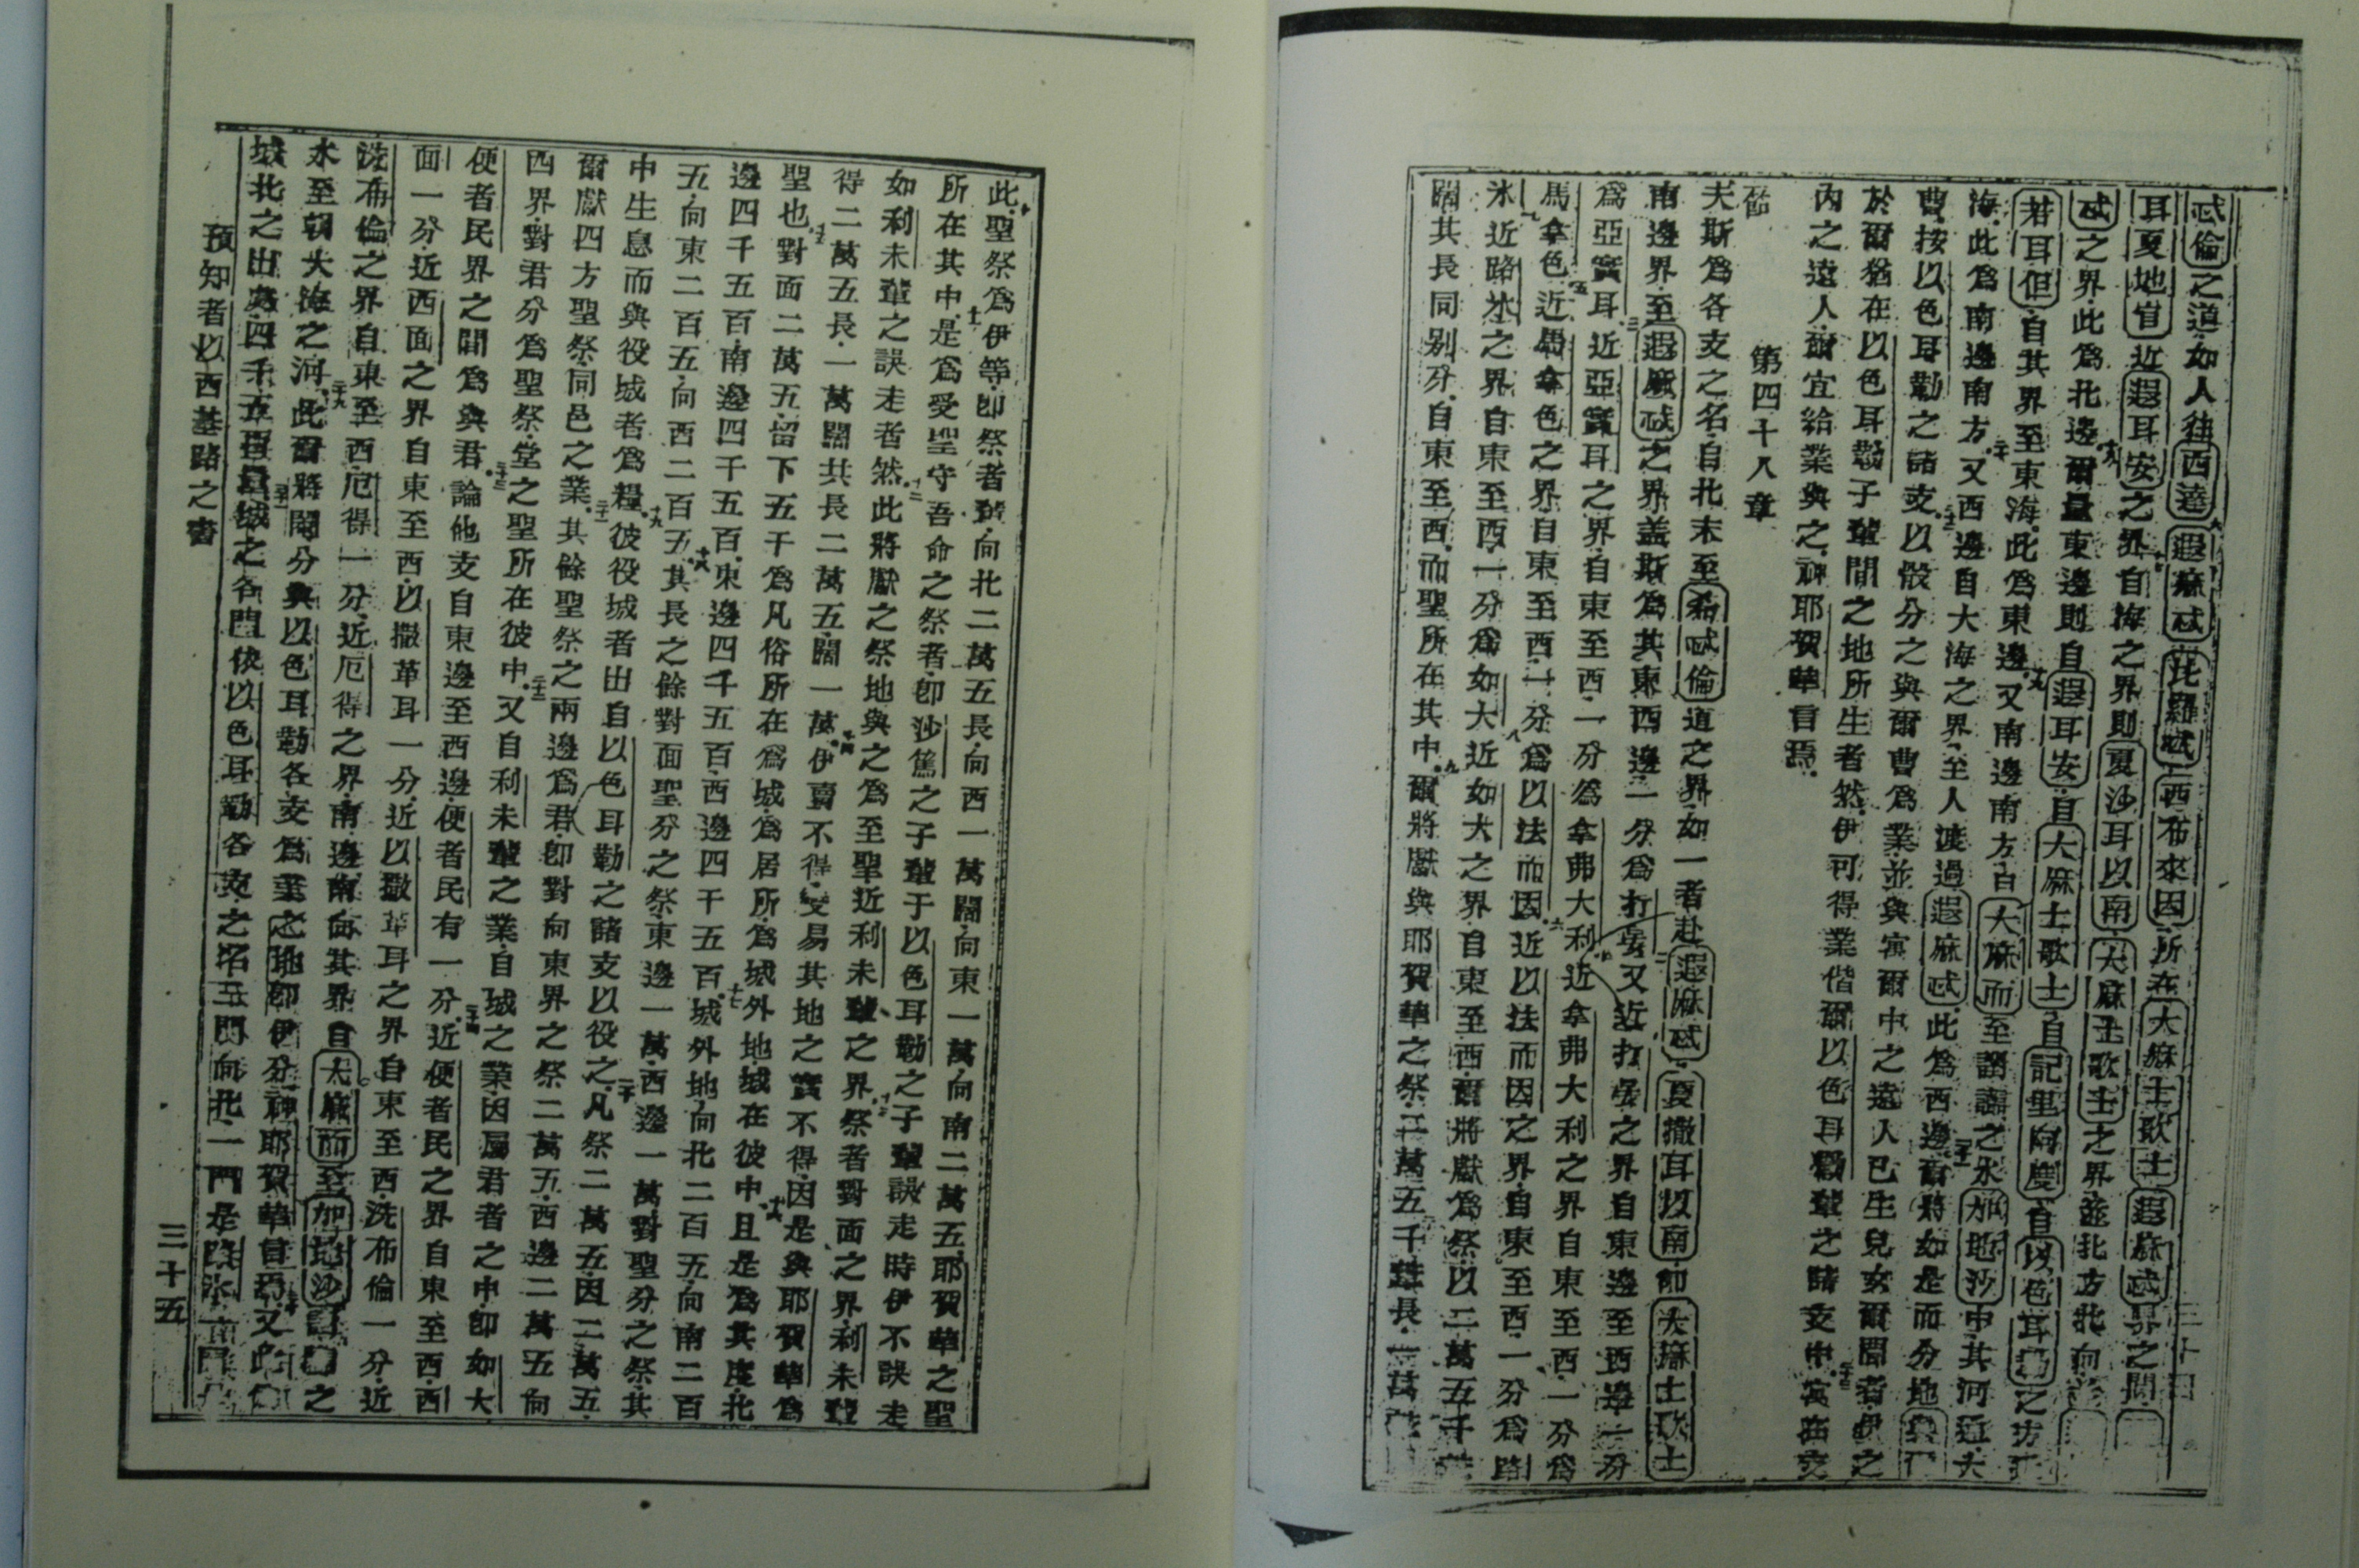 忒倫之道如人往西達遐麻忒比羅忒西布來因所在大麻士歌士遐麻忒界之間
耳夏地眥近遐耳安之界自海之界則夏沙耳以南大麻士歌士之界並北方北向
忒之界此爲北邊爾量東邊則自遐耳安自大麻士歌士自記里阿度自以色耳
若耳但自其界至東海此爲東邊又南邊南方自大麻而至
海此爲南邊南方又西邊自大海之界至人渡過遐麻忒此爲西邊爾將如是而分地
曹按以色耳勒之諸支以骰分之與爾曹爲業並與寓爾中之遠人已生兒女爾間者伊之
於爾猶在以色耳勒子輩間之地所生者然伊可得業偕爾以色耳勒輩之諸支中寓在支
內之遠人爾宜給業與之神耶賀華言焉
節
第四十八章
夫斯爲各支之名自北末至希忒倫道之界如一者赴遐麻忒夏撒耳以南卽大麻士歌士
南邊界至遐麻忒之界盖斯爲其東西邊一分爲打晏又近打晏之界自東邊至西邊一分
爲亞實耳近亞實耳之界自東至西一分爲拿弗大利近拿弗大利之界自東至西一分爲
馬拿色近馬拿色之界自東至西一分爲以法而因近以法而因之界自東至西一分爲路
氷近路氷之界自東至西一分爲如大近如大之界自東至西爾將獻爲祭以二萬五千
闊其長同別分自東至西而聖所在其中爾將獻與耶賀華之祭二萬五千 長一萬
此聖祭爲伊等卽祭者輩向北二萬五長向西一萬闊向東一萬向南二萬五耶賀華之聖
所在其中是爲受聖守吾命之祭者卽沙篤之子輩于以色耳勒之子輩訣走時伊不訣走
如利未輩之訣走者然此將獻之祭地與之爲至聖近利未輩之界祭者對面之界利未輩
得二萬五長一萬闊共長二萬五闊一萬伊賣不得受易其地之實不得因是與耶賀華爲
聖也對面二萬五留下五千爲凡俗所在爲城爲居所爲城外地城在彼中且是爲其度北
邊四千五百南邊四千五百東邊四千五百西邊四千五百城外地向北二百五向南二百
五向東二百五向西二百五其長之餘對面聖分之祭東邊一萬西邊一萬對聖分之祭其
中生息而與役城者爲糧彼役城者出自以色耳勒之諸支以役之凡祭二萬五因二萬五
爾獻四方聖祭同邑之業其餘聖祭之兩邊爲君卽對向東界之祭二萬五西邊二萬五向
西界對君分爲聖祭堂之聖所在彼中又自利未輩之業自城之業因屬君者之中卽如大
便者民界之間爲與君論他支自東邊至西邊便者民有一分近便者民之界自東至西西
面一分近西面之界自東至西以撒革耳一分近以撒革耳之界自東至西洗布倫一分近
洗布倫之界自東至西厄得一分近厄得之界南邊南向其界自大麻而至加地沙 之
水至朝大海之河此爾將鬮分與以色耳勒各支爲業之地卽伊分神耶賀華言焉又此
城北之出處四千五百量城之各門依以色耳勒各支之名三門向北一門是路氷一門
預知者以西基路之書
三十五